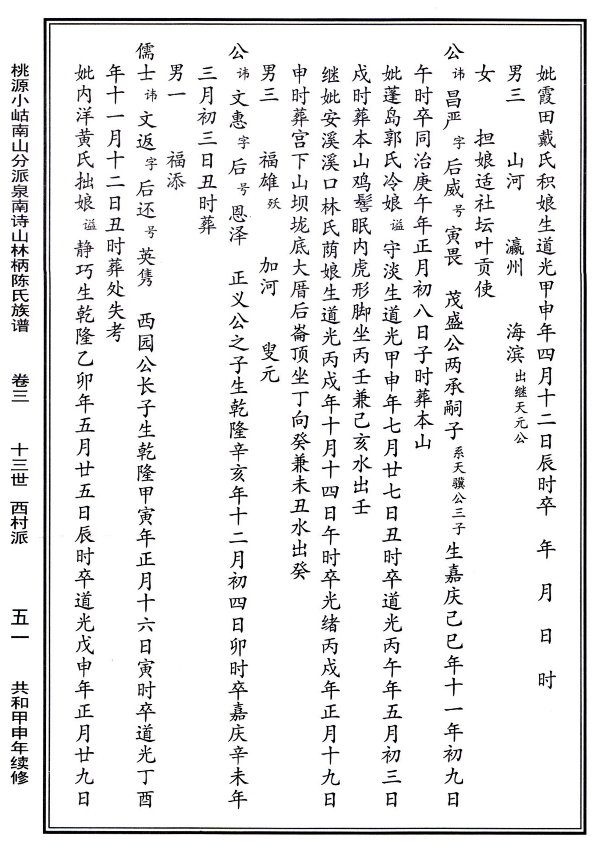 妣霞田戴氏积娘生道光甲申年四月十二日辰时卒　年　月　日　时
男三　山河　瀛州　海滨出继天元公
女　担娘适社坛叶贡使
公讳昌严字后威号寅畏　茂盛公两承嗣子系天骥公三子生嘉庆己巳年十一年初九日
午时卒同治庚午年正月初八日子时葬本山
妣蓬岛郭氏冷娘谥守淡生道光甲申年七月廿七日丑时卒道光丙午年五月初三日
戍时葬本山鸡髻眠内虎形脚坐丙壬兼己亥水出壬
继妣安溪溪口林氏荫娘生道光丙戍年十月十四日午时卒光绪丙戍年正月十九日
申时葬宫下山坝垅底大厝后崙顶坐丁向癸兼未丑水出癸
男三　福雄殀　加河　叟元
公讳文惠字后号恩泽　正义公之子生乾隆辛亥年十二月初四日卯时卒嘉庆辛未年
三月初三日丑时葬
男一　福添
儒士讳文返字后还号英隽　西园公长子生乾隆甲寅年正月十六日寅时卒道光丁酉
年十一月十二日丑时葬处失考
妣内洋黄氏拙娘谥静巧生乾隆乙卯年五月廿五日辰时卒道光戊申年正月廿九日
桃源小岵南山分派泉南诗山林柄陈氏族谱　卷三　十三世　西村派　五一　共和甲申年续修